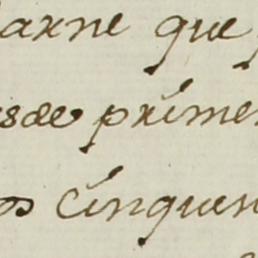 arne que
sde primer
os cinquen